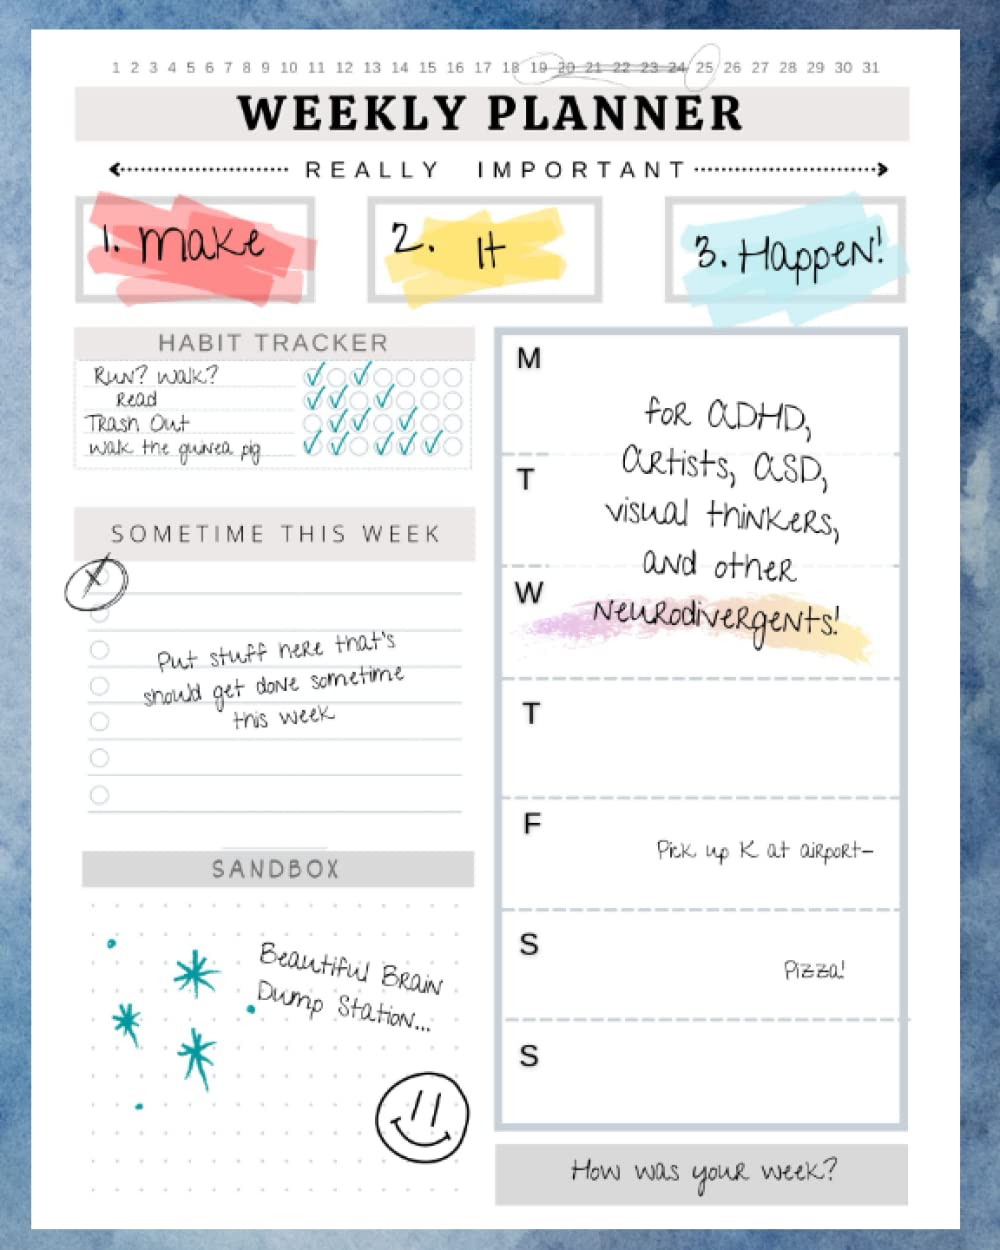 1 2 3 4 5 6 7 8 9 10 11 12 13 14 15 16 17 18 19 20 21 22 23 24 25 26 27 28 29 30 31
WEEKLY PLANNER
REALLY IMPORTANT
1. Make
2. It
3. Happen!
HABIT TRACKER
Run? Walk?
Read
Trash Out
Walk the guinea pig
SOMETIME THIS WEEK
X
Put stuff here that's
should get done sometime
this week
SANDBOX
Beautiful Brain
Dump Station...
M
for ADHD,
Artists, ASD,
T
visual thinkers,
and other
W
Neurodivergents!
T
F
Pick up K at airport-
S
Pizza!
S
How was your week?